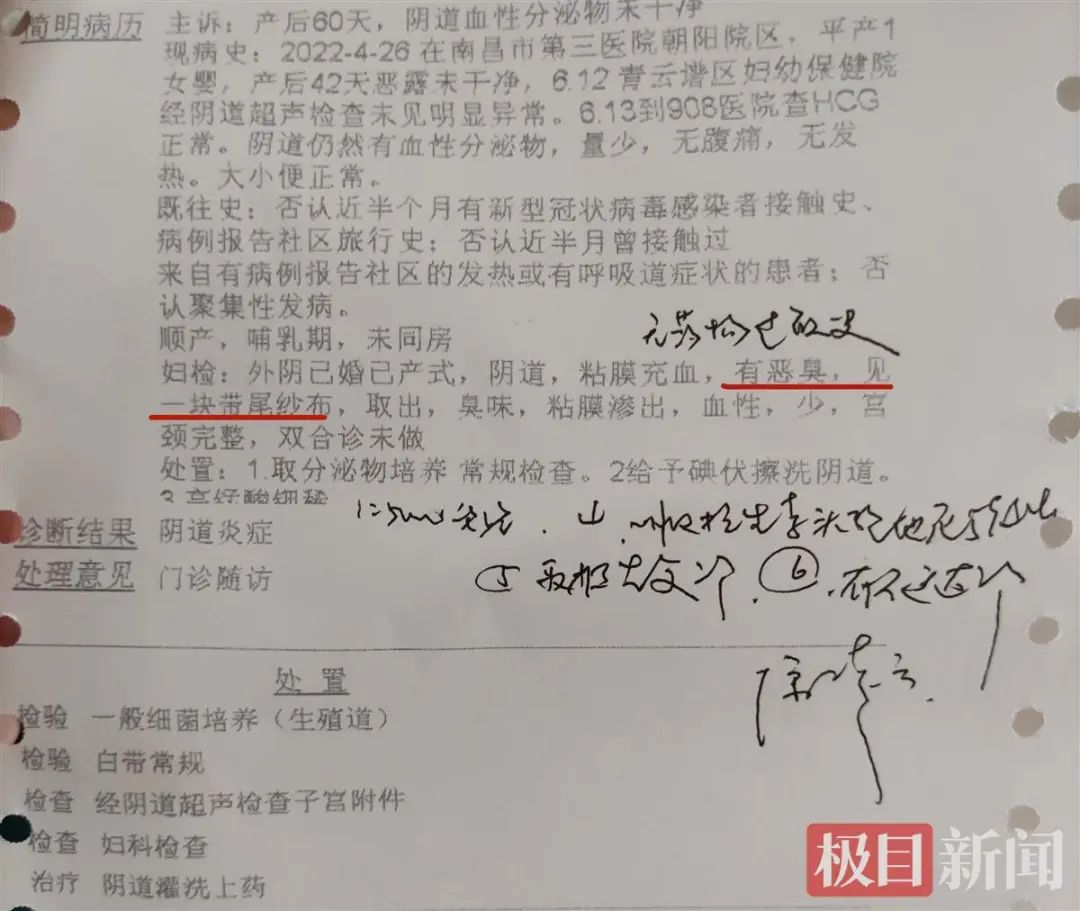 简明病历
主诉：产后60天，阴道血性分泌物未干净
现病史：2022-4-26在南昌市第三医院朝阳院区，平产1
女婴，产后42天恶露未干净，6.12青云谱区妇幼保健院
经阴道超声检查未见明显异常。6.13到908医院查HCG
正常。阴道仍然有血性分泌物，量少，无腹痛，无发
热。大小便正常。
既往史：否认近半个月有新型冠状病毒感染者接触史、
病例报告社区旅行史；否认近半月曾接触过
来自有病例报告社区的发热或有呼吸道症状的患者；否
认聚集性发病。
顺产，哺乳期，未同房
无药物过敏史
妇检：外阴已婚已产式，阴道，粘膜充血，有恶臭，见
一块带尾纱布，取出，臭味，粘膜渗出，血性，少，宫
颈完整，双合诊未做
处置：1.取分泌物培养 常规检查。2给予碘伏擦洗阴道。
诊断结果 阴道炎症
处理意见 门诊随访
处 置
检验 一般细菌培养（生殖道）
检验 白带常规
检查 经阴道超声检查子宫附件
检查 妇科检查
治疗 阴道灌洗上药
极目新闻